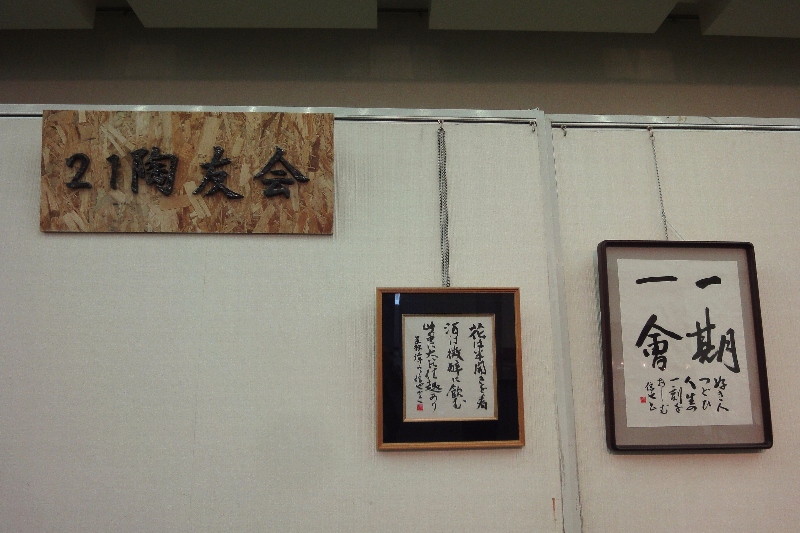 21陶友会
花は半開きを看
酒は微酔に飲む
此処に大いに佳趣あり
一期
一會
好き人
つどひ
人生の
一刻を
おしむ